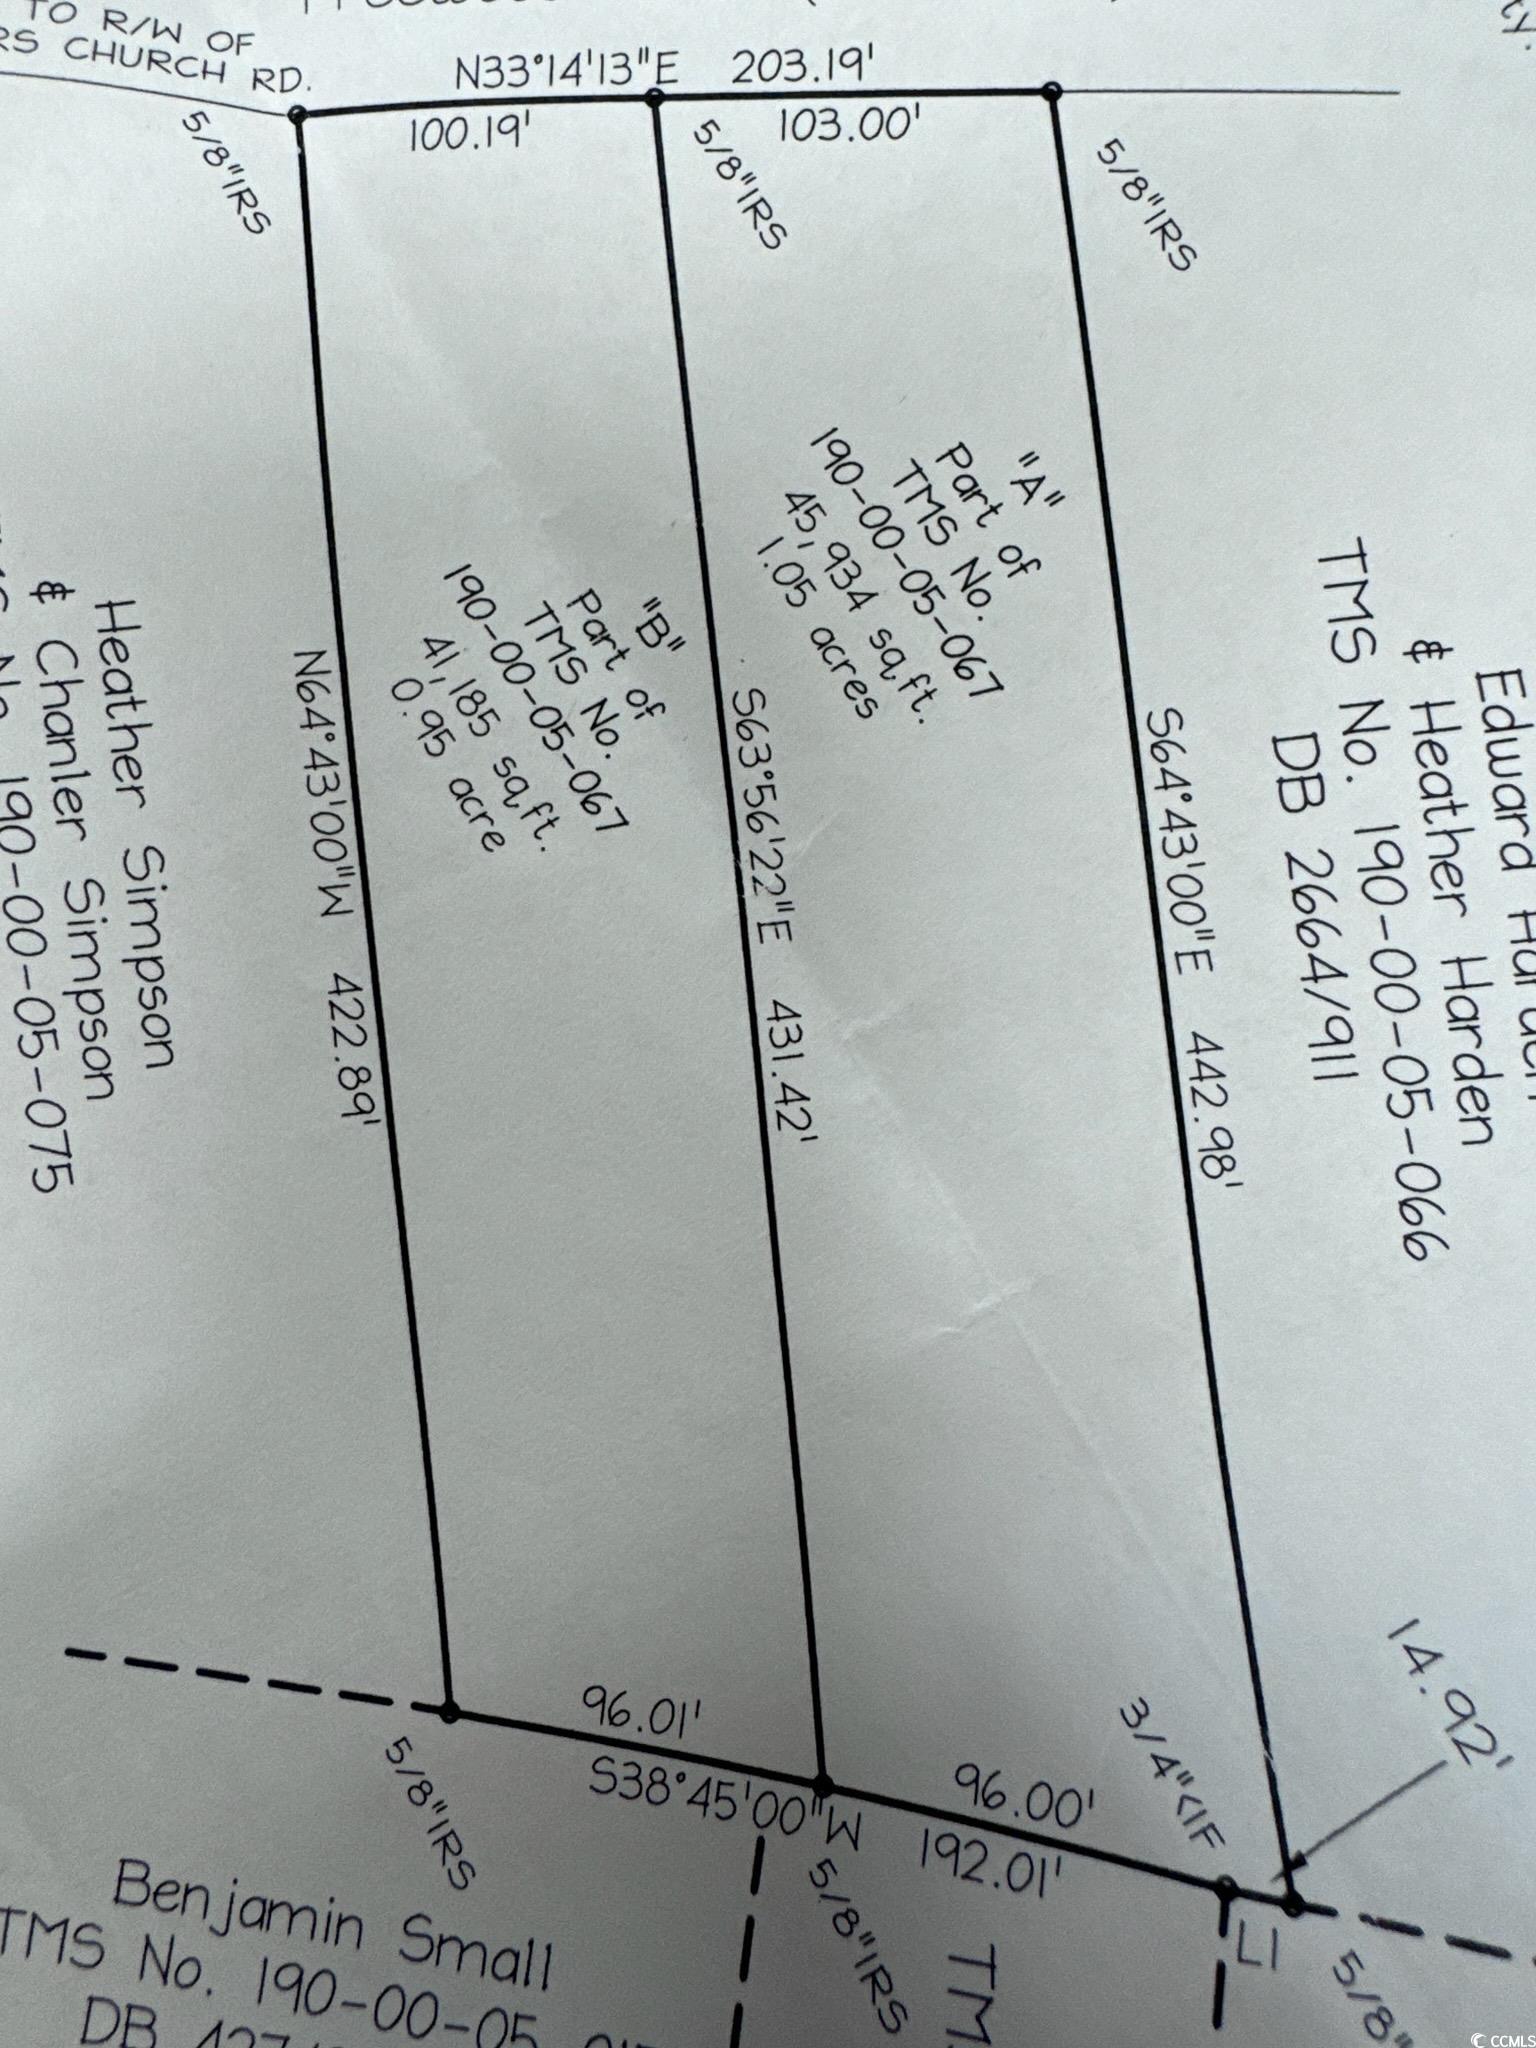 TO R/W OF
RS CHURCH RD.
N33°14'13"E 203.19'
100.19'
103.00'
5/8"IRS
5/8"IRS
5/8"IRS
"A"
Part of
TMS No.
190-00-05-067
45,934 sq.ft.
1.05 acres
"B"
Part of
TMS No.
190-00-05-067
41,185 sq.ft.
0.95 acre
N64°43'00"W 422.89'
S63°56'22"E 431.42'
S64°43'00"E 442.98'
Heather Simpson
& Chanler Simpson
190-00-05-075
Edward
& Heather Harden
TMS No. 190-00-05-066
DB 2664/911
96.01'
S38°45'00"W
96.00'
192.01'
3/4"<IF
14.92'
L1
5/8"IRS
5/8"IRS
5/8"
Benjamin Small
TMS No. 190-00-05
DB
TM
CCMLS